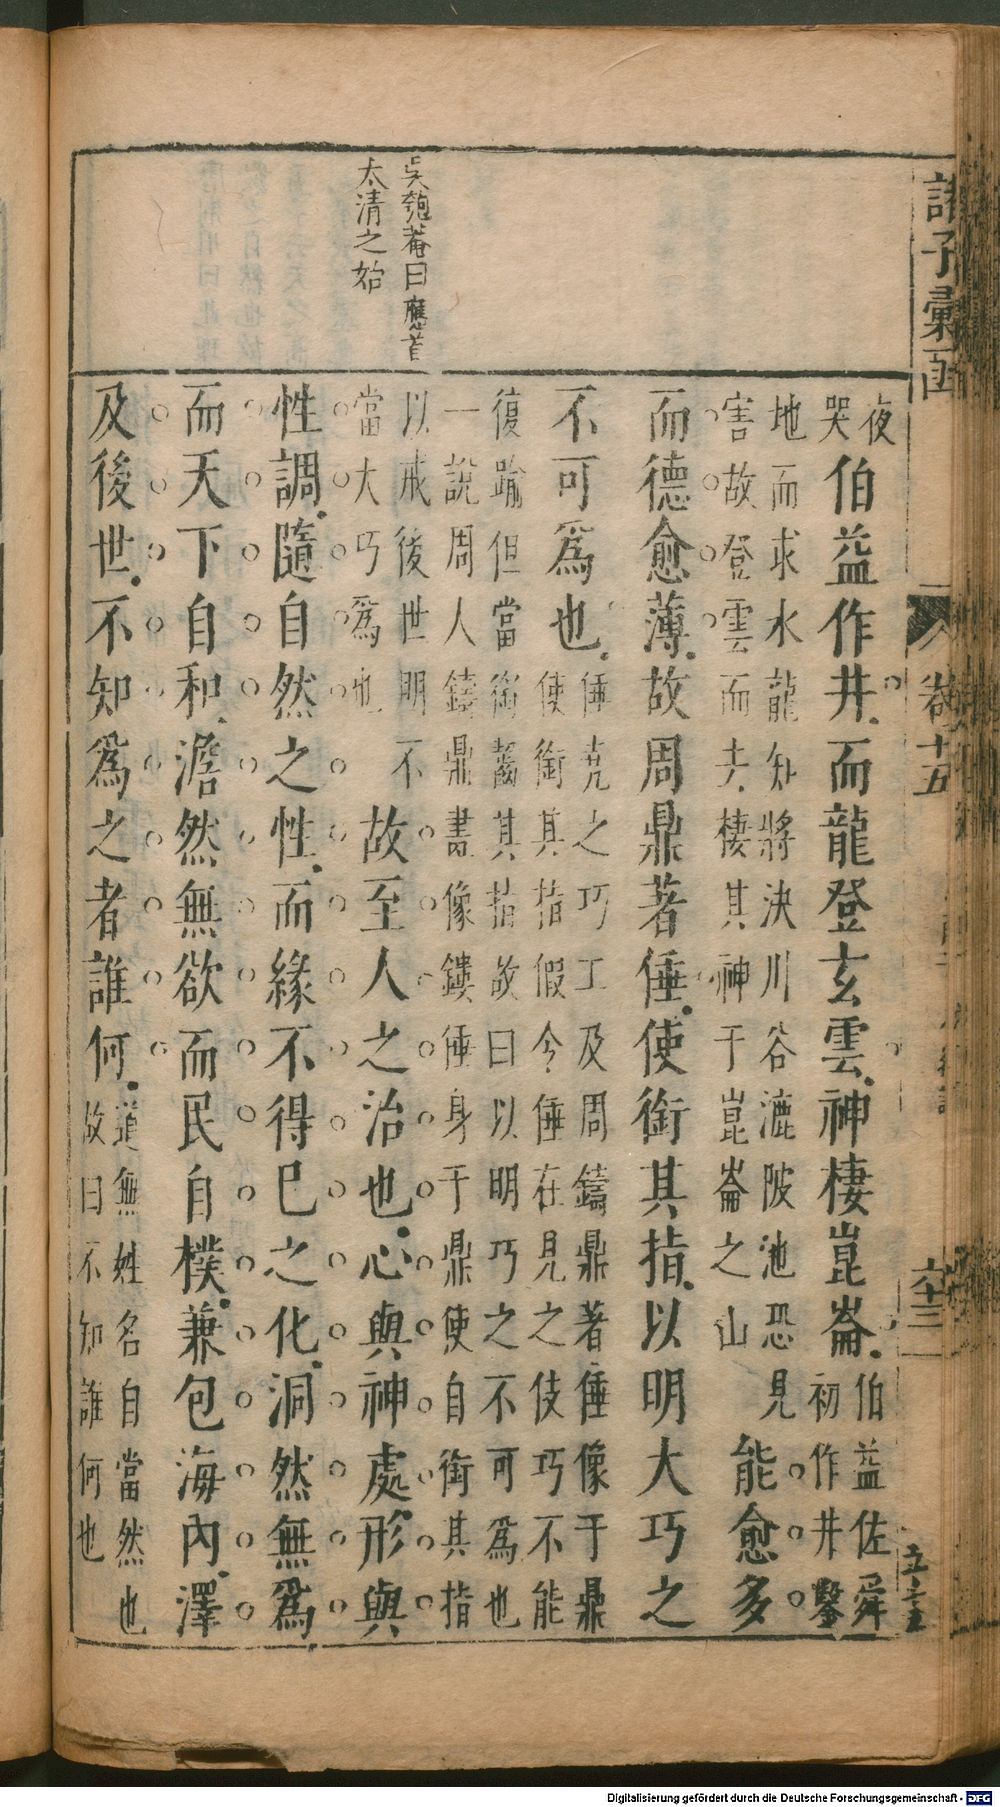 諸子彙函
卷十五
六十三
吳匏菴曰應首
太清之始
夜
哭
伯益作井而龍登玄雲神棲崑崙
伯益佐舜
初作井鑿
地而求水龍知將決川谷漉陂池恐見
害故登雲而去棲其神于崑崙之山
能愈多
而德愈薄故周鼎著倕使銜其指以明大巧之
不可爲也
倕堯之巧工及周鑄鼎著倕像于鼎
使銜其指假令倕在見之伎巧不能
復踰但當銜齧其指故曰以明巧之不可爲也
一說周人鑄鼎畫像鏤倕身于鼎使自銜其指
以戒後世明不
當大巧爲也
故至人之治也心與神處形與
性調隨自然之性而緣不得已之化洞然無爲
而天下自和澹然無欲而民自樸兼包海內澤
及後世不知爲之者誰何
道無姓名自當然也
故曰不知誰何也
Digitalisierung gefördert durch die Deutsche Forschungsgemeinschaft - DFG